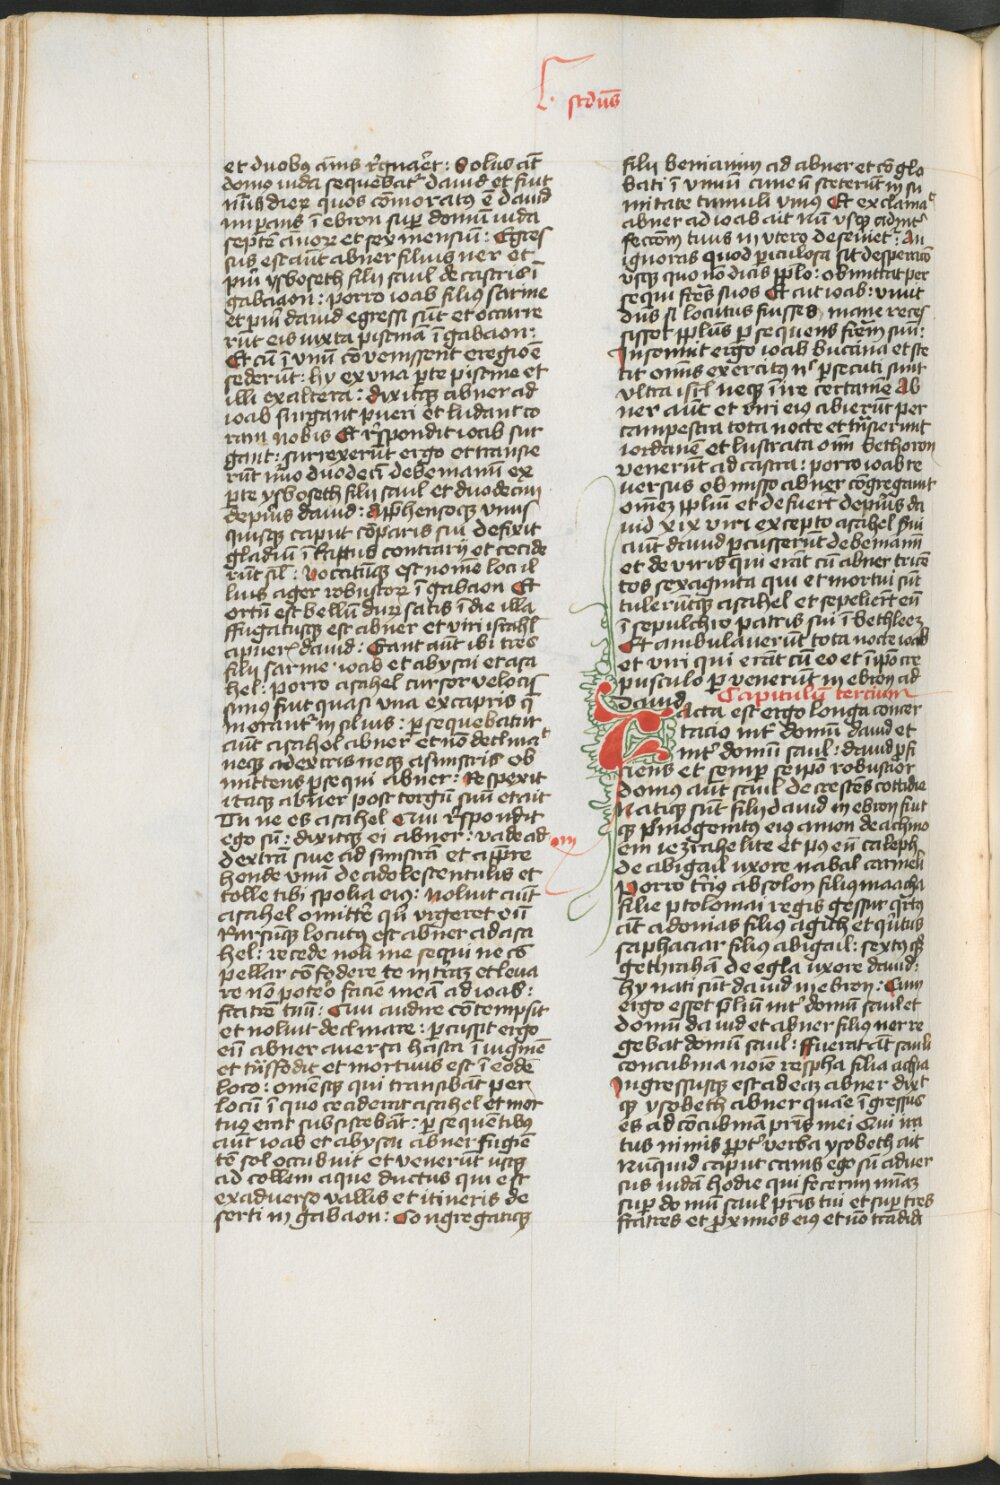 L. scd̄us
et duobꝰ an̄is r̄gnau̓et : Solus aūt
domꝰ iuda sequebatʳ dauid et fuit
nūus dierꝝ quos cōmoratꝰ ē dauid
imperans ī ebron suꝑ domum iuda
septē annorꝝ et sex mensium : Egres
sus est aūt abner filius ner et
pūi ysboseth filij saul de castris ī
gabaaon : porro ioab filius saruie
et pūi dauid egressi sūt et occurre
rūt eis iuxta piscinam ī gabaon :
Et cū ī vnū cōuenissent eregiōe
sederūt : hy ex vna ꝑte piscine et
illi ex altera : dixitqꝫ abner ad
ioab surgant pueri et ludant co
ram nobis Et r̄spondit ioab sur
gant : surrexerūt ergo et transie
rūt nūo duodeci debeniamī ex
ꝑte ysboseth filij saul et duodecim
de pūis dauid : apphensoqꝫ vnus
quisqꝫ caput cōparis sui defixit
gladiū ī latus contrarij et cecide
rūt sil̄ : vocatūqꝫ est nomē loci il
lius ager robustorꝝ ī gabaon Et
ortū est bellū durꝝ satis ī die illa
ffugatusqꝫ est abner et viri israhl
apueris dauid : Erant aūt ibi tres
filij saruie ioab et abysai et asa
hel : porro asahel cursor velocis
simus fuit quasi vna ex capris q̄
morantʳ in siluis : ꝑsequebatur
aūt asahel abner et nō declinaᵗ
neqꝫ adextris neqꝫ asinistris ob
mittens ꝑsequi abner : Respexit
itaqꝫ abner post tergū suū et ait
Tu ne es asahel Qui r̄spondit
ego sū : dixitqꝫ ei abner : vade ad
dextrā siue ad sinistrā et appre
hende vnū de adolescentulis et
tolle tibi spolia eiꝰ : noluit aūt
asahel omittē qn̄ vrgeret eū
Rursūqꝫ locutꝰ est abner ad asa
hel : recede noli me sequi ne cō
pellar cōfodere te in t̄raꝫ et leua
re nō potero faciē meā ad ioab :
fratrē tuū : Qui audire cōtempsit
et noluit declinare : ꝑcussit ergo
eū abner auersa hasta ī īguinē
et trāsfodit et mortuus est ī eodē
loco : omēsqꝫ qui transibāt per
locū ī quo ceciderat asahel et mor
tuꝰ erat subsistebāt : ꝑsequētibꝰ
aūt ioab et abysai abner fugiē
tē sol occubuit et venerūt usqꝫ
ad collem aque ductus qui est
ex aduerso vallis et itineris de
serti in gabaon : Congregatiqꝫ
filij beniamin ad abner et cōglo
bati ī vnū cuneū steterūt in su
mitate tumuli vniꝰ Et exclamaᵗ
abner ad ioab ait nū vsqꝫ ad int̓
fectōem tuus mucro deseuiet : An
ignoras quod ꝑiculosa sit desperatio
vsqꝫ quo nō dicis ppl̄o : obmittat per
sequi fr̄es suos Et ait ioab : viuit
dn̄s si locutus fuisses mane reces
sisset ppl̄us ꝑsequens fr̄em suū :
Insonuit ergo ioab buccina et ste
tit omnis exercitꝰ nᶜ ꝑsecuti sunt
vltra isrl̄ neqꝫ iniere certamē Ab
ner aūt et viri eiꝰ abierūt per
campestra tota nocte et trāsierunt
iordanē et lustrata om̄i bethoron
venerūt ad castra : porro ioab re
uersus obmisso abner cōgregauit
omēꝫ ppl̄um et defuert̄ de pūis da
uid xix viri excepto asahel Sui
aūt dauid ꝑcusserūt debeniamī
et de viris qui erāt cū abner trice
tos sexaginta qui et mortui sūt
tulerūtqꝫ asahel et sepelierūt eū
ī sepulchro patris sui ī bethleeꝫ
Et ambulauerūt tota nocte ioab
et viri qui erāt cū eo et ī ipo cre
pusculo ꝑuenerūt in ebron ad
dauid Capitulū tercium
Facta est ergo longa concer
tacio int̓ domū dauid et
int̓ domū saul : dauid ꝓfi
ciens et semꝑ seipō robustior
domus aūt saul decrescēs cottidie
Natiqꝫ sūt filij dauid in ebron fuit
qꝫ p̄mogenitꝰ eiꝰ amon de achino
em iezrahelite et pꝰ eū caleph
de abigail uxore nabal carmeli
Porro tc̓iꝰ absolon filiꝰ maacha
filie ptolomai regis gessur qr̄tꝰ
aūt adonias filiꝰ agith et qn̄tus
saphaciar filiꝰ abigail : sextꝰ qꝫ
gethrahā de egla uxore dauid :
hy nati sūt dauid in ebron : Cum
ergo esset p̄liū int̓ domū saul et
domū dauid et abner filiꝰ ner re
gebat domū saul : ffuerat aūt sauli
concubina noīe respha filia achia
Ingressusqꝫ est ad eaꝫ abner dixᵗ
qꝫ ysobeth abner quare īgressus
es ad cōcubinā pr̄is mei Qui ira
tus nimis ꝓpt̓ verba ysobeth ait
Nunquid caput canis ego sū aduer
sus iudā hodie qui fecerim miaꝫ
suꝑ domū saul pr̄is tui et suꝑ tres
fratres et ꝓximos eiꝰ et nō tradidi